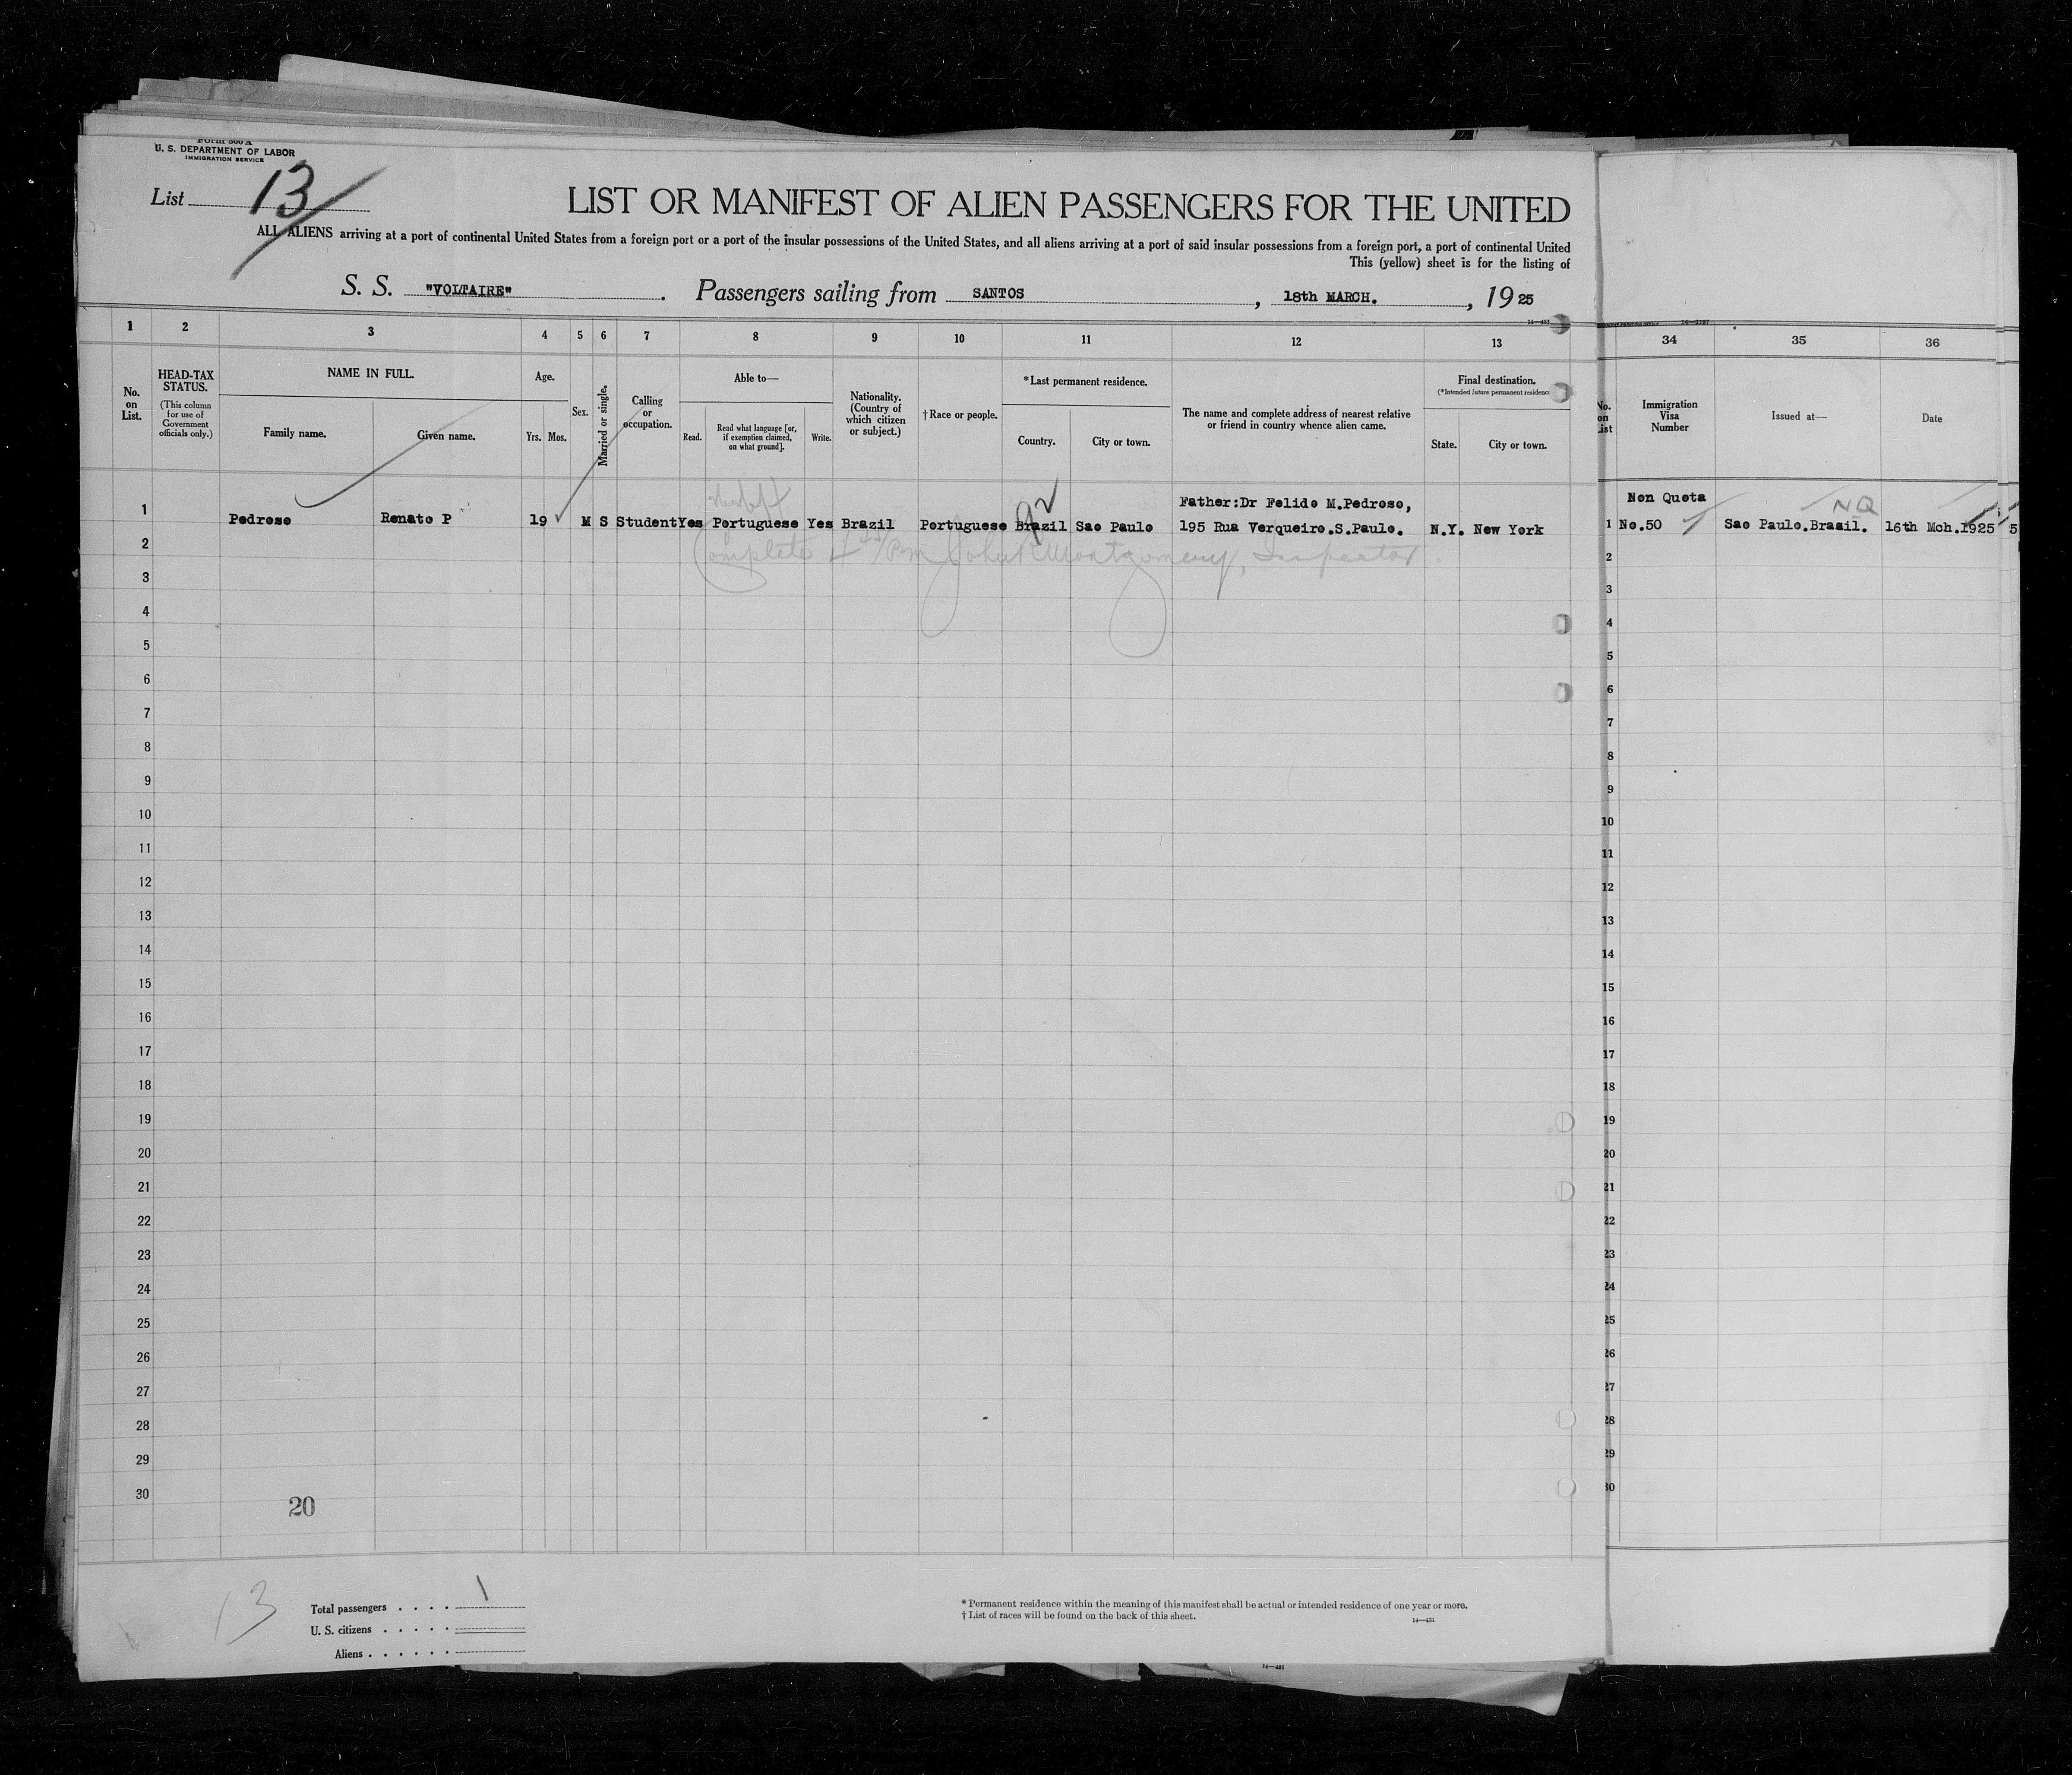 Form 500 A
U. S. DEPARTMENT OF LABOR
IMMIGRATION SERVICE
List 13
LIST OR MANIFEST OF ALIEN PASSENGERS FOR THE UNITED
ALL ALIENS arriving at a port of continental United States from a foreign port or a port of the insular possessions of the United States, and all aliens arriving at a port of said insular possessions from a foreign port, a port of continental United
This (yellow) sheet is for the listing of
S. S. "VOLTAIRE". Passengers sailing from SANTOS, 18th MARCH., 1925
14—431
14—2197
1 2 3 4 5 6 7 8 9 10 11 12 13 34 35 36
No. on List.
HEAD-TAX STATUS.
(This column for use of Government officials only.)
NAME IN FULL.
Family name.
Given name.
Age.
Yrs. Mos.
Sex.
Married or single.
Calling or occupation.
Able to—
Read.
Read what language [or, if exemption claimed, on what ground].
Write.
Nationality. (Country of which citizen or subject.)
†Race or people.
*Last permanent residence.
Country.
City or town.
The name and complete address of nearest relative or friend in country whence alien came.
Final destination.
(*Intended future permanent residence
State.
City or town.
No. on List
Immigration Visa Number
Issued at—
Date
Father:Dr Felido M.Pedroso,
Non Quota
NQ
1 Pedroso Renato P 19 M S Student Yes Portuguese Yes Brazil Portuguese Brazil Sao Paulo 195 Rua Verqueiro.S.Paulo. N.Y. New York 1 No.50 Sao Paulo.Brasil. 16th Mch.1925 5
Complete 4 PM John Montgomery, Inspector.
2 2
3 3
4 4
5 5
6 6
7 7
8 8
9 9
10 10
11 11
12 12
13 13
14 14
15 15
16 16
17 17
18 18
19 19
20 20
21 21
22 22
23 23
24 24
25 25
26 26
27 27
28 28
29 29
30 30
20
13
Total passengers . . . . 1
U. S. citizens . . . . .
Aliens . . . . . .
* Permanent residence within the meaning of this manifest shall be actual or intended residence of one year or more.
† List of races will be found on the back of this sheet.
14—431
14—431